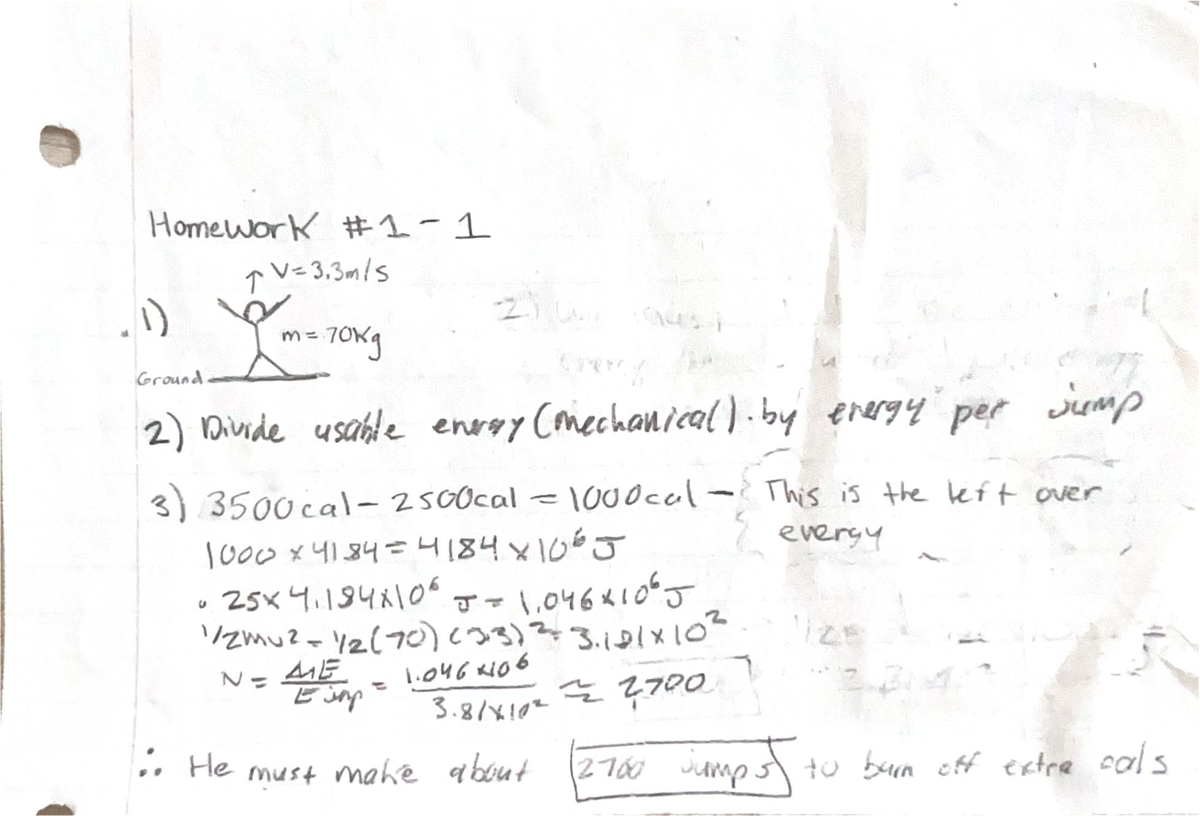 Homework #1-1
↑ V=3.3m/s
1)
m=70Kg
Ground
2) Divide usable energy (mechanical) by energy per jump
3) 3500cal - 2500cal = 1000cal - This is the left over
energy
1000 x 4184 = 4184 x 10⁶ J
.25 x 4.184x10⁶ J = 1.046x10⁶ J
1/2mv2 = 1/2(70)(3.3)² = 3.181x10²
N = = 1.046 x10⁶ / 3.81x10² ≈ 2700
∴ He must make about 2700 jumps to burn off extra cals